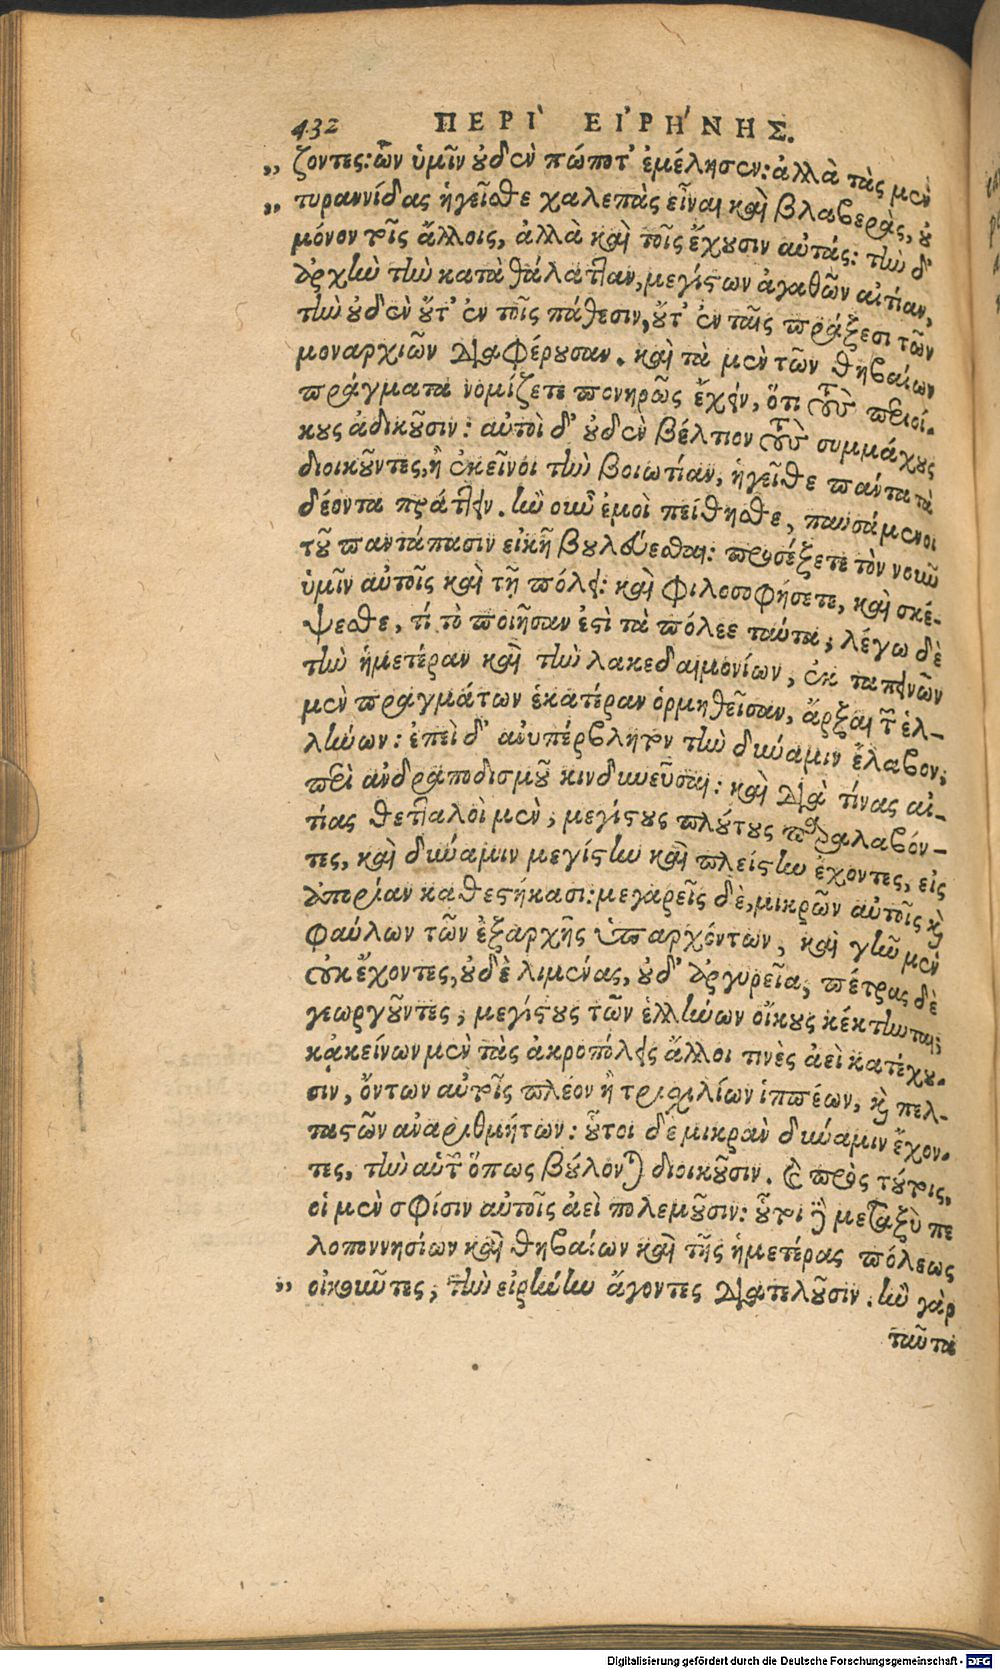 432 ΠΕΡῚ ΕἸΡΉΝΗΣ.
„ ζοντες: ὧν ὑμῖν οὐδὲν πώποτ' ἐμέλησεν: ἀλλὰ τὰς μὲν
„ τυραννίδας ἡγεῖσθε χαλεπὰς εἶναι καὶ βλαβερὰς, οὐ
μόνον τοῖς ἄλλοις, ἀλλὰ καὶ τοῖς ἔχουσιν αὐτάς: τὴν δ'
ἀρχὴν τὴν κατὰ θάλατταν, μεγίστων ἀγαθῶν αἰτίαν,
τὴν οὐδὲν οὔτ' ἐν τοῖς πάθεσιν, οὔτ' ἐν ταῖς πράξεσι τῶν
μοναρχιῶν διαφέρουσαν. καὶ τὰ μὲν τῶν Θηβαίων
πράγματα νομίζετε πονηρῶς ἔχειν, ὅτι τοὺς περιοί-
κους ἀδικοῦσιν: αὐτοὶ δ' οὐδὲν βέλτιον τοὺς συμμάχους
διοικοῦντες, ἢ ἐκεῖνοι τὴν βοιωτίαν, ἡγεῖσθε πάντα τὰ
δέοντα πράττειν. ἢν οὖν ἐμοὶ πείθησθε, παυσάμενοι
τοῦ παντάπασιν εἰκῆ βουλεύεσθαι: προσέξετε τὸν νοῦν
ὑμῖν αὐτοῖς καὶ τῇ πόλει: καὶ φιλοσοφήσετε, καὶ σκέ-
ψεσθε, τί τὸ ποιῆσάν ἐστὶ τὰ πόλεε ταύτα, λέγω δὲ
τὴν ἡμετέραν καὶ τὴν λακεδαιμονίων, ἐκ ταπεινῶν
μὲν πραγμάτων ἑκατέραν ὁρμηθεῖσαν, ἄρξαι τῶν ἑλ-
λήνων: ἐπεὶ δ' ἀνυπέρβλητον τὴν δύναμιν ἔλαβον,
περὶ ἀνδραποδισμοῦ κινδυνεῦσαι: καὶ διὰ τίνας αἰ-
τίας θετταλοὶ μὲν, μεγίστους πλούτους παραλαβόν-
τες, καὶ δύναμιν μεγίστην καὶ πλείστην ἔχοντες, εἰς
ἀπορίαν καθεστήκασι: μεγαρεῖς δὲ, μικρῶν αὐτοῖς καὶ
φαύλων τῶν ἐξαρχῆς ὑπαρχόντων, καὶ γῆν μὲν
οὐκ ἔχοντες, οὐδὲ λιμένας, οὐδ' ἀργυρεῖα, πέτρας δὲ
γεωργοῦντες, μεγίστους τῶν ἑλλήνων οἴκους κέκτηνται;
κᾀκείνων μὲν τὰς ἀκροπόλεις ἄλλοι τινὲς ἀεὶ κατέχου-
σιν, ὄντων αὐτοῖς πλέον ἢ τρισχιλίων ἱππέων, καὶ πελ-
ταστῶν ἀναριθμήτων: οὗτοι δὲ μικρὰν δύναμιν ἔχον-
τες, τὴν αὑτῶν ὅπως βούλονται διοικοῦσιν. καὶ πρὸς τούτοις,
οἱ μὲν σφίσιν αὐτοῖς ἀεὶ πολεμοῦσιν: οὗτοι δὲ μεταξὺ πε
λοποννησίων καὶ θηβαίων καὶ τῆς ἡμετέρας πόλεως
„ οἰκοῦντες, τὴν εἰρήνην ἄγοντες διατελοῦσιν. ἢν γὰρ
ταῦτα
Digitalisierung gefördert durch die Deutsche Forschungsgemeinschaft - DFG